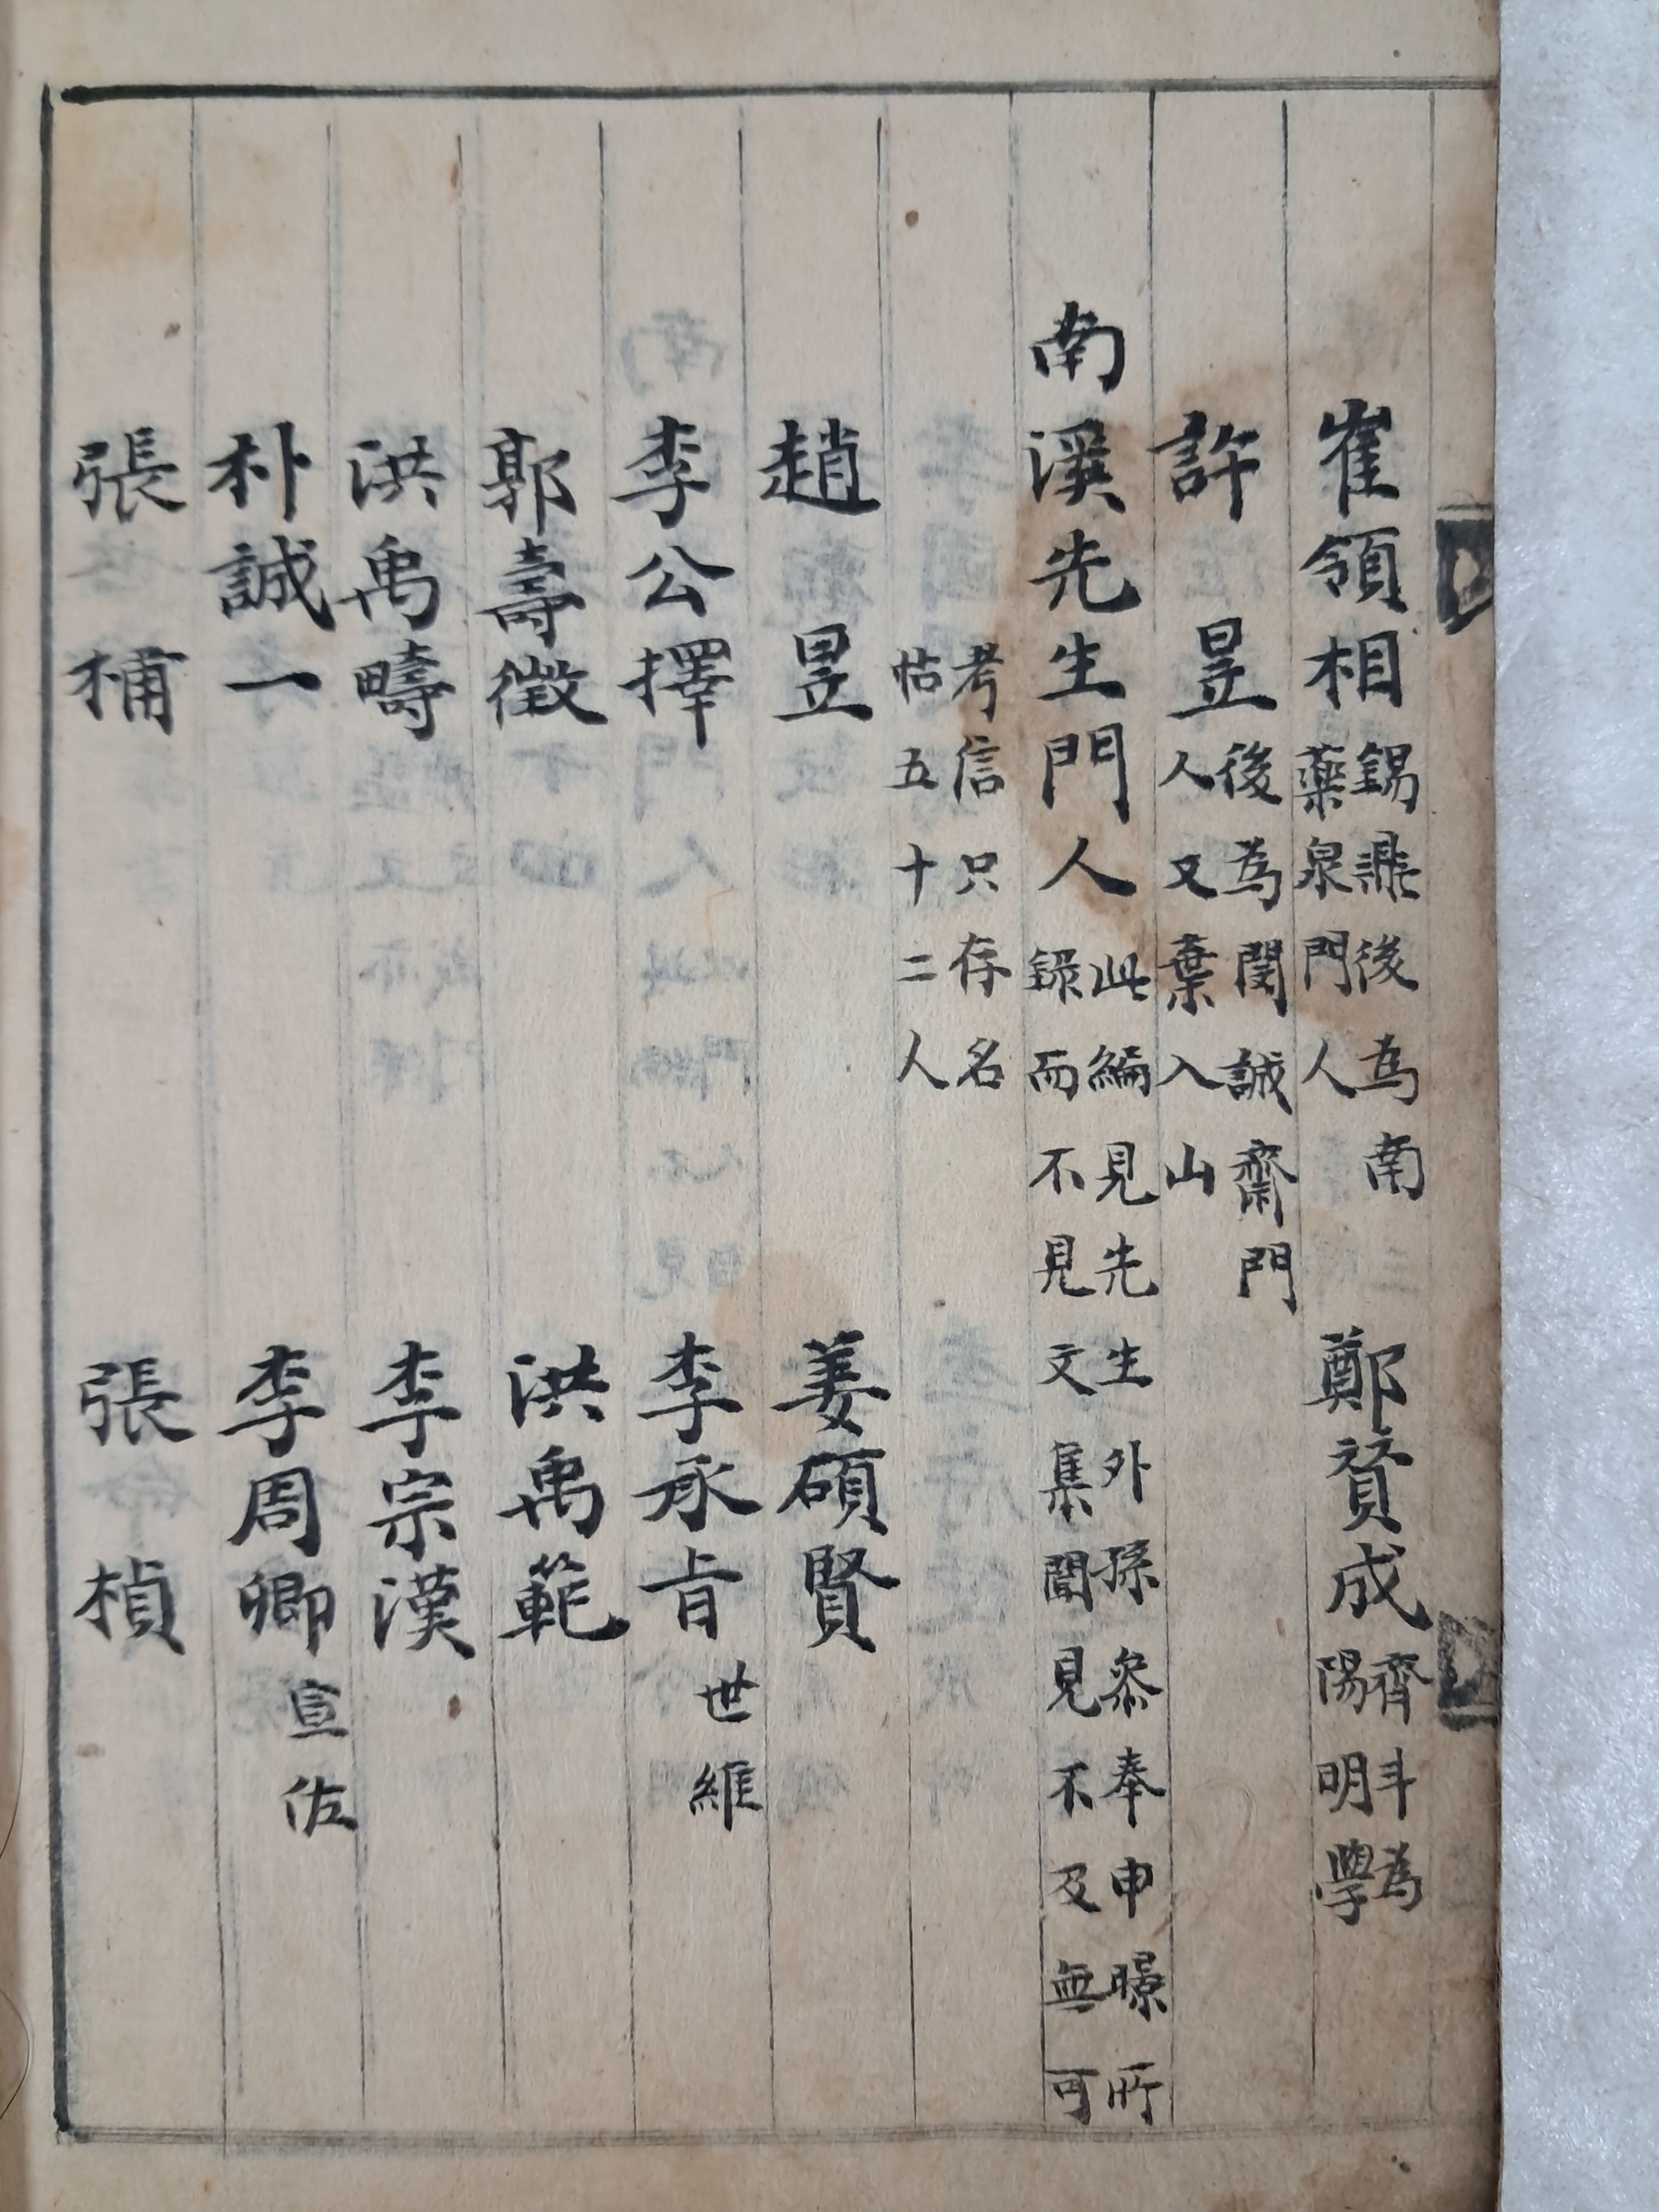 崔領相錫鼎後為南藥泉門人 鄭贊成齊斗為陽明學
許昱後為閔誠齋門人又棄入山
南溪先生門人此編見先生外孫參奉申暻所錄而不見文集聞見不及無可
考信只存名帖五十二人
趙昱 姜碩賢
李公擇 李承肯世維
郭壽徵 洪禹範
洪禹疇 李宗漢
朴誠一 李周卿宣佐
張楠 張楨